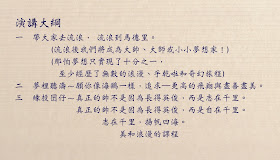 演講大綱
一 帶大家去流浪，流浪到馬德里。
(流浪後我們將成為大師、大師或小小夢想家！)
(那怕夢想只實現了十分之一，
至少經歷了無數的浪漫、手乾啦和奇幻旅程)
二 夢裡聽濤~願你像海鷗一樣，追求一更高的飛翔與盡善盡美。
三 練投囝仔~真正的帥不是因為長得英俊，而是志在千里。
真正的帥不是因為長得英俊，而是自在千里。
志在千里，揚帆四海。
美和浪漫的課程